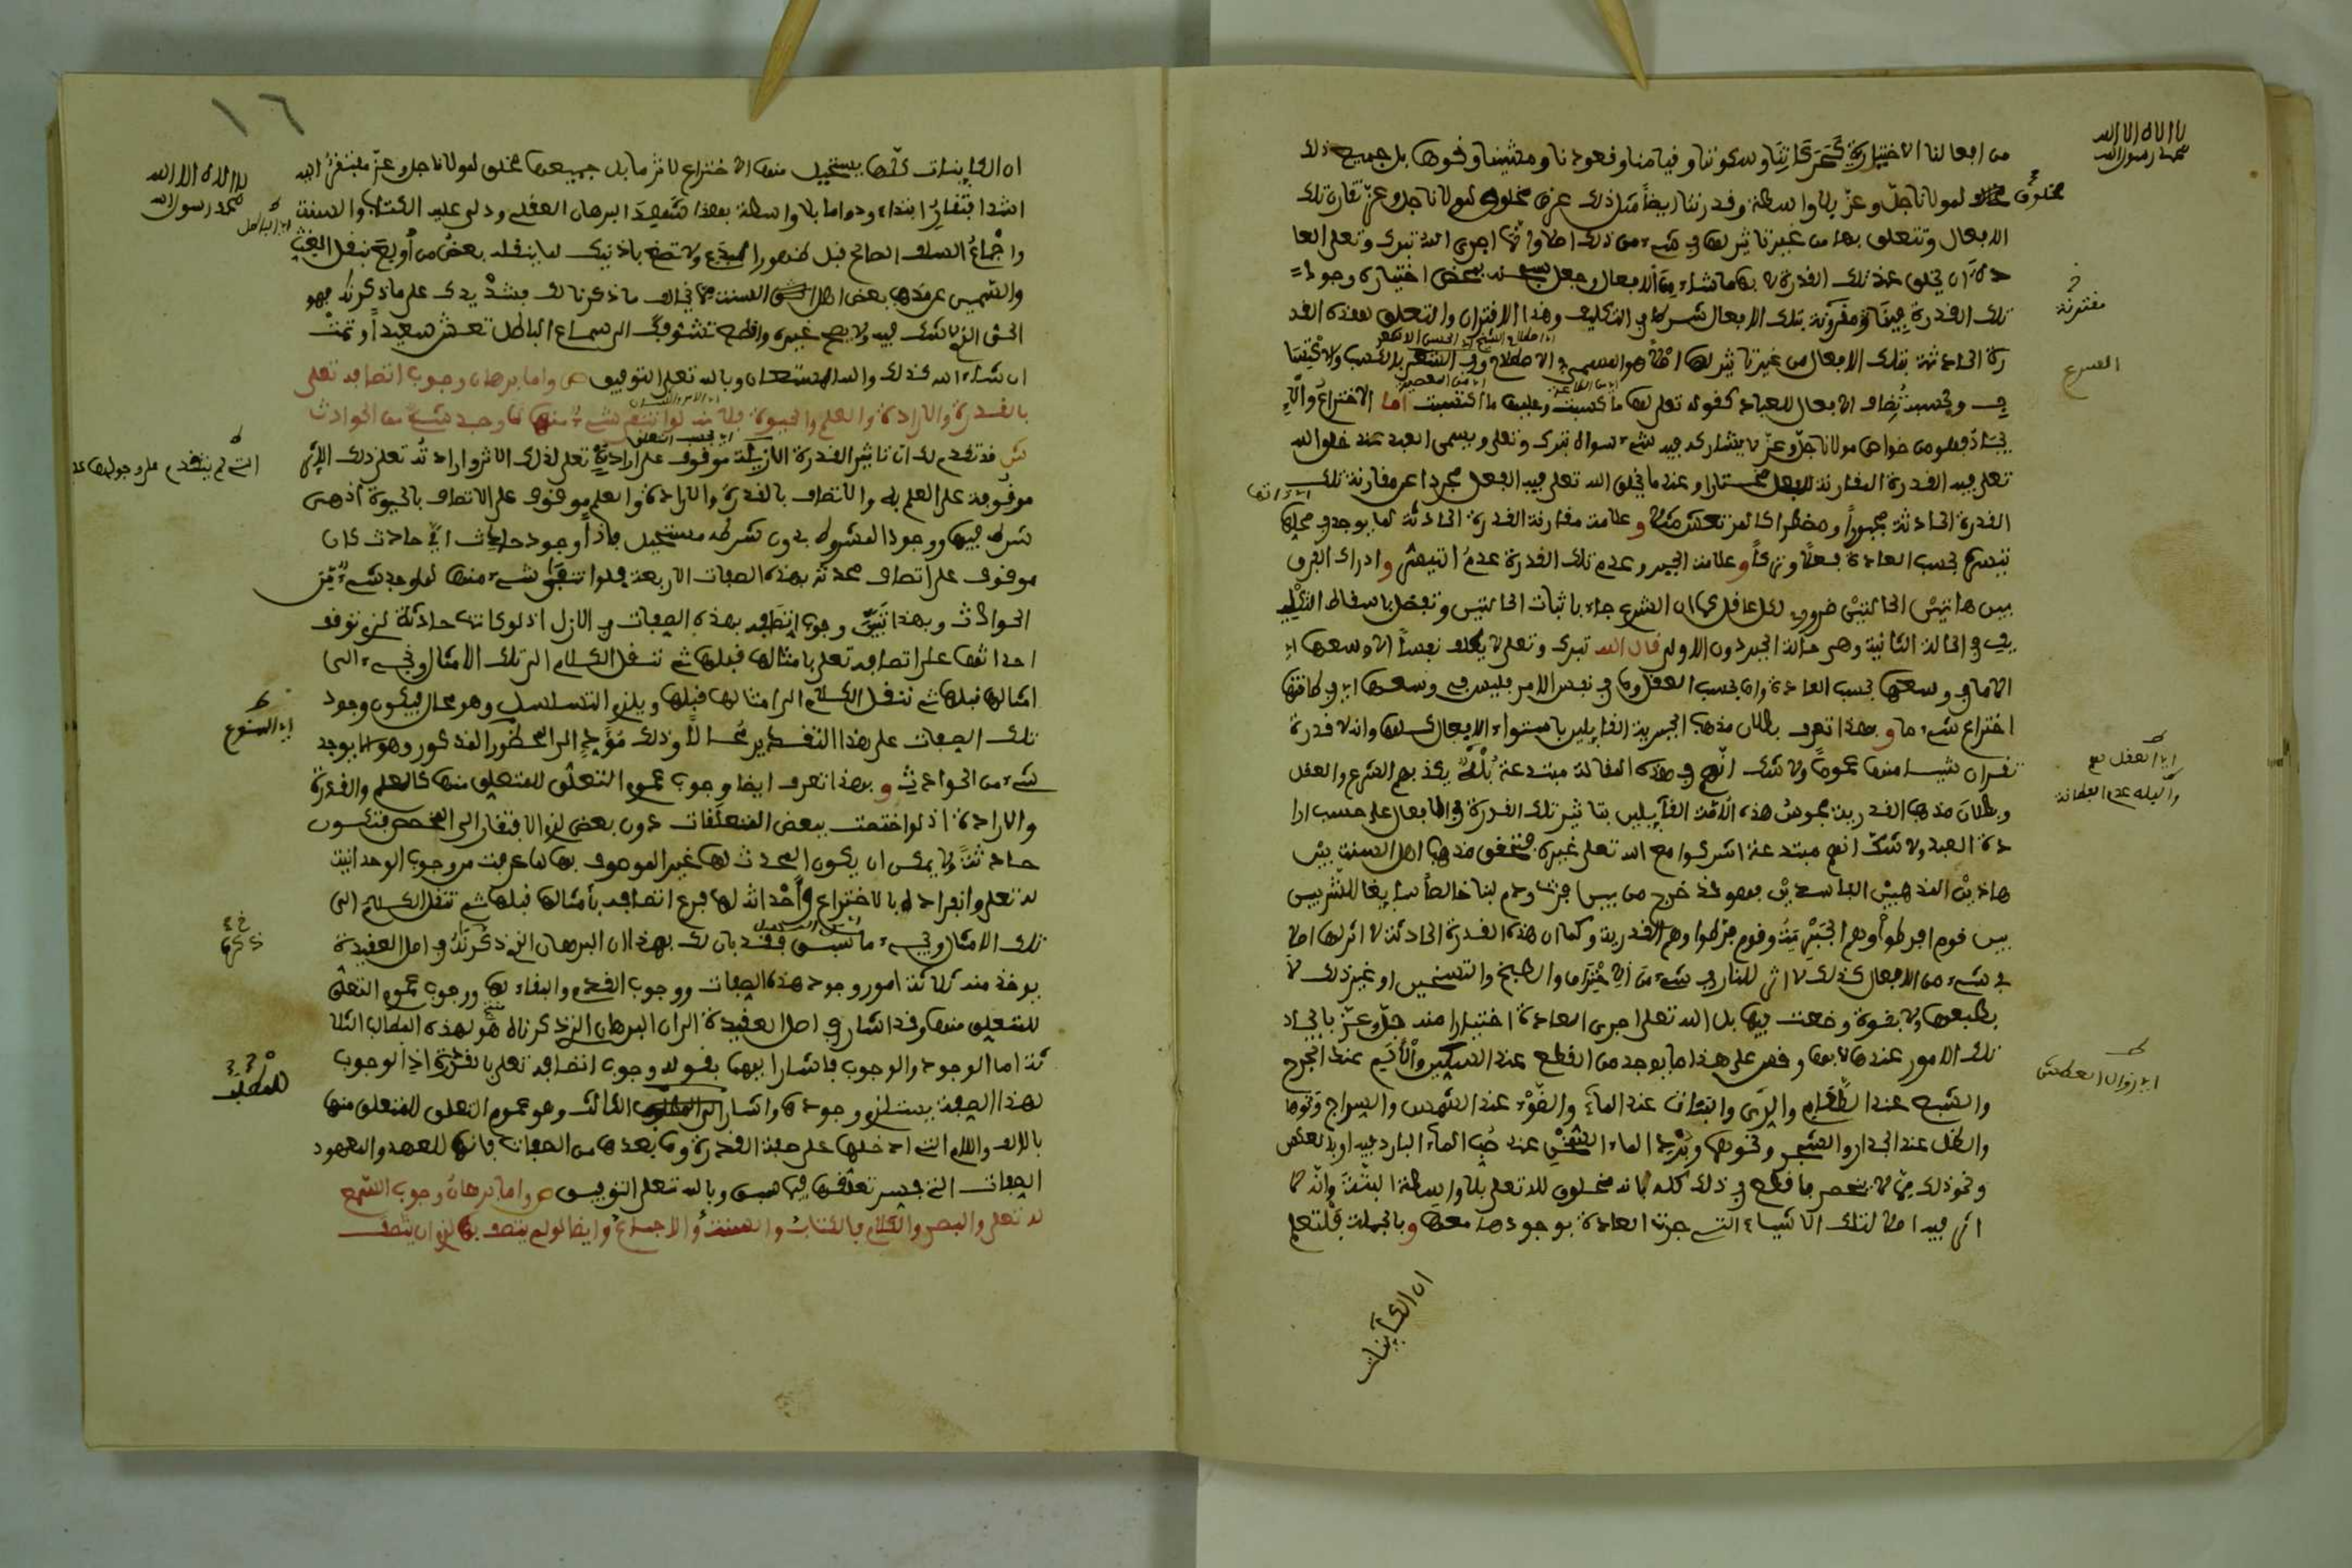 لا اله الا الله
محمد رسول الله
من افعالنا الاختيارية كحركاتنا وسكوننا وقيامنا وقعودنا ومشينا ونحوها بل جميع ذلك
مخلوق لمولانا جل وعز بلا واسطة وقدرتنا ايضا مثل ذلك عرض مخلوق لمولانا جل وعز تقارن تلك
الافعال وتتعلق بها من غير تاثير لها في شيء من ذلك اصلا وانما اجرى الله تبرك وتعلى العا
دة ان يخلق عند تلك القدرة لا بها ما شاء من الافعال وجعل سبحنه بمحض اختياره وجود
تلك القدرة فينا مقرونة بتلك الافعال شرطا في التكليف وهذا الاقتران والتعلق لهذه القد
مقترنة
رة الحادثة بتلك الافعال من غير تاثير لها اصلا هو المسمى في الاصطلاح وفي الشرع بالكسب والاكتسا
الشرع
ب وبحسبه تضاف الافعال للعباد كقوله تعلى لها ما كسبت وعليها ما اكتسبت اما الاختراع والا
يجاد فهو من خواص مولانا جل وعز لا يشاركه فيه شيء سواه تبرك وتعلى ويسمى العبد عند خلق الله
تعلى فيه القدرة المقارنة للفعل مختارا وعند ما يخلق الله تعلى فيه الفعل مجردا عن مقارنة تلك
القدرة الحادثة مجبورا ومضطرا كالمرتعش مثلا وعلامة مقارنة القدرة الحادثة لما يوجد في محلها
تيسره بحسب العادة فعلا وتركا وعلامة الجبر وعدم تلك القدرة عدم التيسر وادراك الفرق
بين هاتين الحالتين ضروري لكل عاقل كما ان الشرع جاء باثبات الحالتين وتفضل باسقاط التكلي
ف في الحالة الثانية وهي حالة الجبر دون الاولى قال الله تبرك وتعلى لا يكلف نفسا الا وسعها اي
الا ما في وسعها بحسب العادة واما بحسب العقل وما في نفس الامر فليس في وسعها اي في طاقتها
اختراع شيء ما وبهذا تعرف بطلان مذهب الجبرية القائلين باستواء الافعال كلها وانه لا قدرة
تقارن شيئا منها عموما ولا شك انهم في هذه المقالة مبتدعة بله يكذبهم الشرع والعقل
اي العقل
والبله عدم الفطانة
وبطلان مذهب القدرية مجوس هذه الامة القائلين بتاثير تلك القدرة في الافعال على حسب ارا
دة العبد ولا شك انهم مبتدعة اشركوا مع الله تعلى غيره فتحقق مذهب اهل السنة بين
هاذين المذهبين الفاسدين فهو قد خرج من بين فرث ودم لبنا خالصا سايغا للشربين
بين قوم افرطوا وهم الجبرية وقوم فرطوا وهم القدرية وكما ان هذه القدرة الحادثة لا اثر لها اصلا
في شيء من الافعال كذلك لا اثر للنار في شيء من الاحتراق والطبخ والتسخين او غير ذلك لا
بطبعها ولا بقوة وضعت فيها بل الله تعلى اجرى العادة اختيارا منه جل وعز بايجاد
تلك الامور عندها لا بها وقس على هذا ما يوجد من القطع عند السكين والالم عند الجرح
والشبع عند الطعام والري والنبات عند الماء والضوء عند الشمس والسراج ونحوها
اي زوال العطش
والظل عند الجدار والشجر ونحوها وبرد الماء السخن عند صب الماء البارد فيه او بالعكس
ونحو ذلك مما لا ينحصر فاقطع في ذلك كله بانه مخلوق لله تعلى بلا واسطة البتة وانه لا
اثر فيه اصلا لتلك الاشياء التي جرت العادة بوجودها معها وبالجملة فلتعلم
ان الكاينات
١٦
لا اله الا الله
محمد رسول الله
ان الكاينات كلها يستحيل منها الاختراع لاثر ما بل جميعها مخلوق لمولانا جل وعز مفتقر اليه
اشد افتقار ابتداء ودواما بلا واسطة بهذا شهد البرهان العقلي ودل عليه الكتاب والسنة
واجماع السلف الصالح قبل ظهور البدع ولا تصغ باذنيك لما ينقله بعض من اولع بنقل الغث
والسمين عن مذهب بعض اهل السنة مما يخالف ما ذكرنا لك فشد يدك على ما ذكرته فهو
الحق الذي لا شك فيه ولا يصح غيره واقطع تشوفك الى سماع الباطل تعش سعيدا وتمت
ان شاء الله كذلك والله المستعان وبالله تعلى التوفيق ص واما برهان وجوب اتصافه تعلى
بالقدرة والارادة والعلم والحيوة فلانه لو انتفى شيء منها لما وجد شيء من الحوادث
ش قد تقدم لك ان تاثير القدرة الازلية موقوف على ارادته تعلى لذلك الاثر وارادته تعلى لذلك الاثر
موقوفة على العلم به والاتصاف بالقدرة والارادة والعلم موقوف على الاتصاف بالحيوة اذ هي
شرط فيها ووجود المشروط بدون شرطه مستحيل فاذا وجود حادث اي حادث كان
موقوف على اتصاف محدثه بهذه الصفات الاربعة فلو انتفى شيء منها لما وجد شيء من
الحوادث وبهذا تبين وجوب اتصافه بهذه الصفات في الازل اذ لو كانت حادثة لزم توقف
احداثها على اتصافه تعلى بامثالها قبلها ثم تنقل الكلام الى تلك الامثال ويجيء الى
امثالها قبلها ثم تنقل الكلام الى امثالها قبلها ويلزم التسلسل وهو محال فيكون وجود
تلك الصفات على هذا التقدير محالا وذلك مؤد الى المحظور المذكور وهو ان لا يوجد
اي الممنوع
شيء من الحوادث وبهذا تعرف ايضا وجوب عموم التعلق للمتعلق منها كالعلم والقدرة
والارادة اذ لو اختصت ببعض المتعلقات دون بعض لزم الافتقار الى المخصص فتكون
حادثة ولا يمكن ان يكون المحدث لها غير الموصوف بها لما عرفت من وجوب الوحدانية
له تعلى وانفراده بالاختراع واحداثه لها فرع اتصافه بامثالها قبلها ثم تنقل الكلام الى
تلك الامثال ويجيء ما سبق فقد بان لك بهذا ان البرهان الذي ذكرته في اصل العقيدة
يوخذ منه ثلاثة امور وجود هذه الصفات ووجوب القدم والبقاء لها ووجوب عموم التعلق
للمتعلق منها وقد اشار في اصل العقيدة الى ان البرهان الذي ذكرناه هو لهذه المطالب الثلا
ثة اما الوجود والوجوب فاشار اليهما بقوله وجوب اتصافه تعلى بالقدرة اذ الوجوب
لهذه الصفة يستلزم وجودها واشار الى المطلب الثالث وهو عموم التعلق للمتعلق منها
بالالف واللام التي ادخلها على صفة القدرة وما بعدها من الصفات فانها للعهد والمعهود
الصفات التي فسر تعلقها فيما سبق وبالله تعلى التوفيق ص واما برهان وجوب السمع
له تعلى والبصر والكلام فالكتاب والسنة والاجماع وايضا لو لم يتصف بها لزم ان يتصف